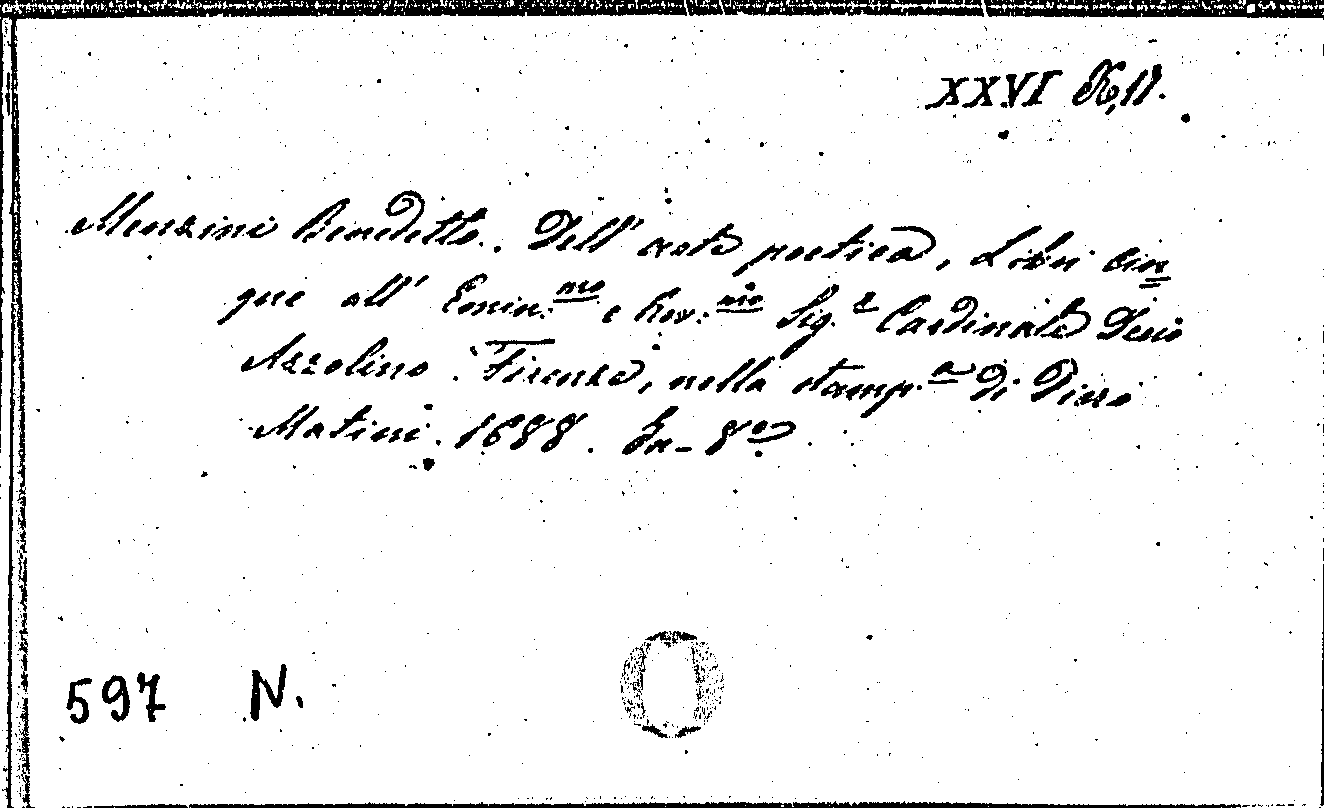 XXVI K, 11.
Menzini Benedetto. Dell' arte poetica, Libri cin=
que all' Emin.mo e Rev.mo Sig.r Cardinale Decio
Azzolino. Firenze, nella stamp.a di Piero
Matini. 1688. In-8°
597 N.